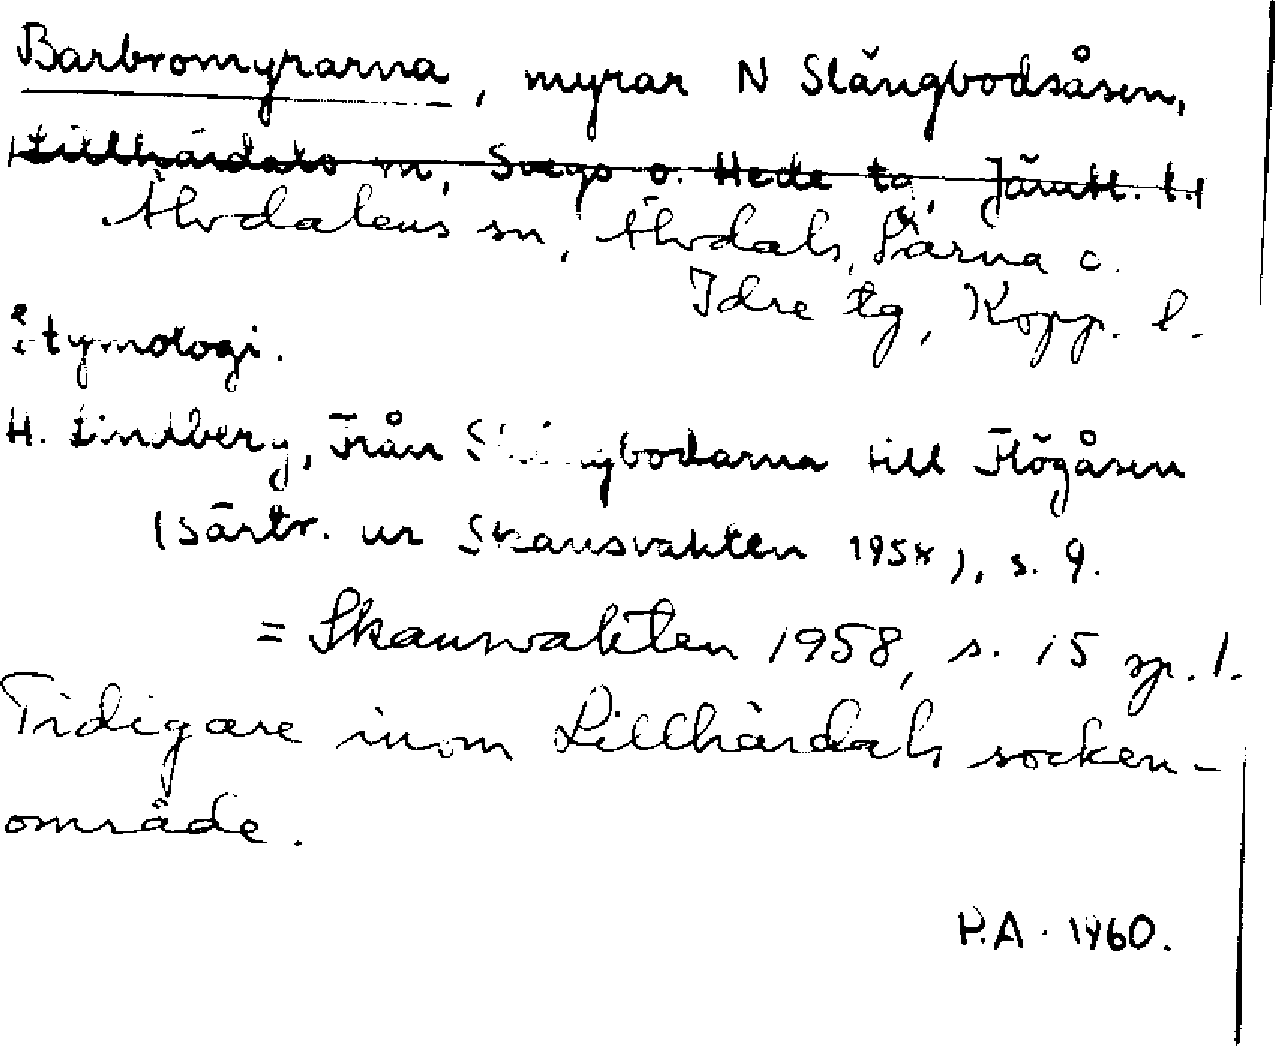 Barbromyrarna, myrar N Slängbodsåsen,
Lillhärdals sn, Svegs o. Hede tg, Jämtl. l.
Älvdalens sn, Älvdals, Särna o.
Idre tg, Kopp. l.
Etymologi.
H. Lindberg, Från Slängbodarna till Flögåsen
(särtr. ur Skansvakten 1958), s. 9.
= Skansvakten 1958, s. 15 sp. 1.
Tidigare inom Lillhärdals socken-
område.
P.A. 1960.